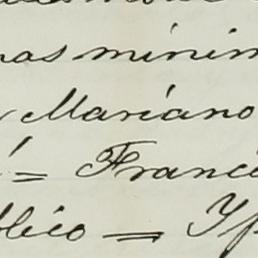 mas minim
Mariano
= Franc
blico = Yp